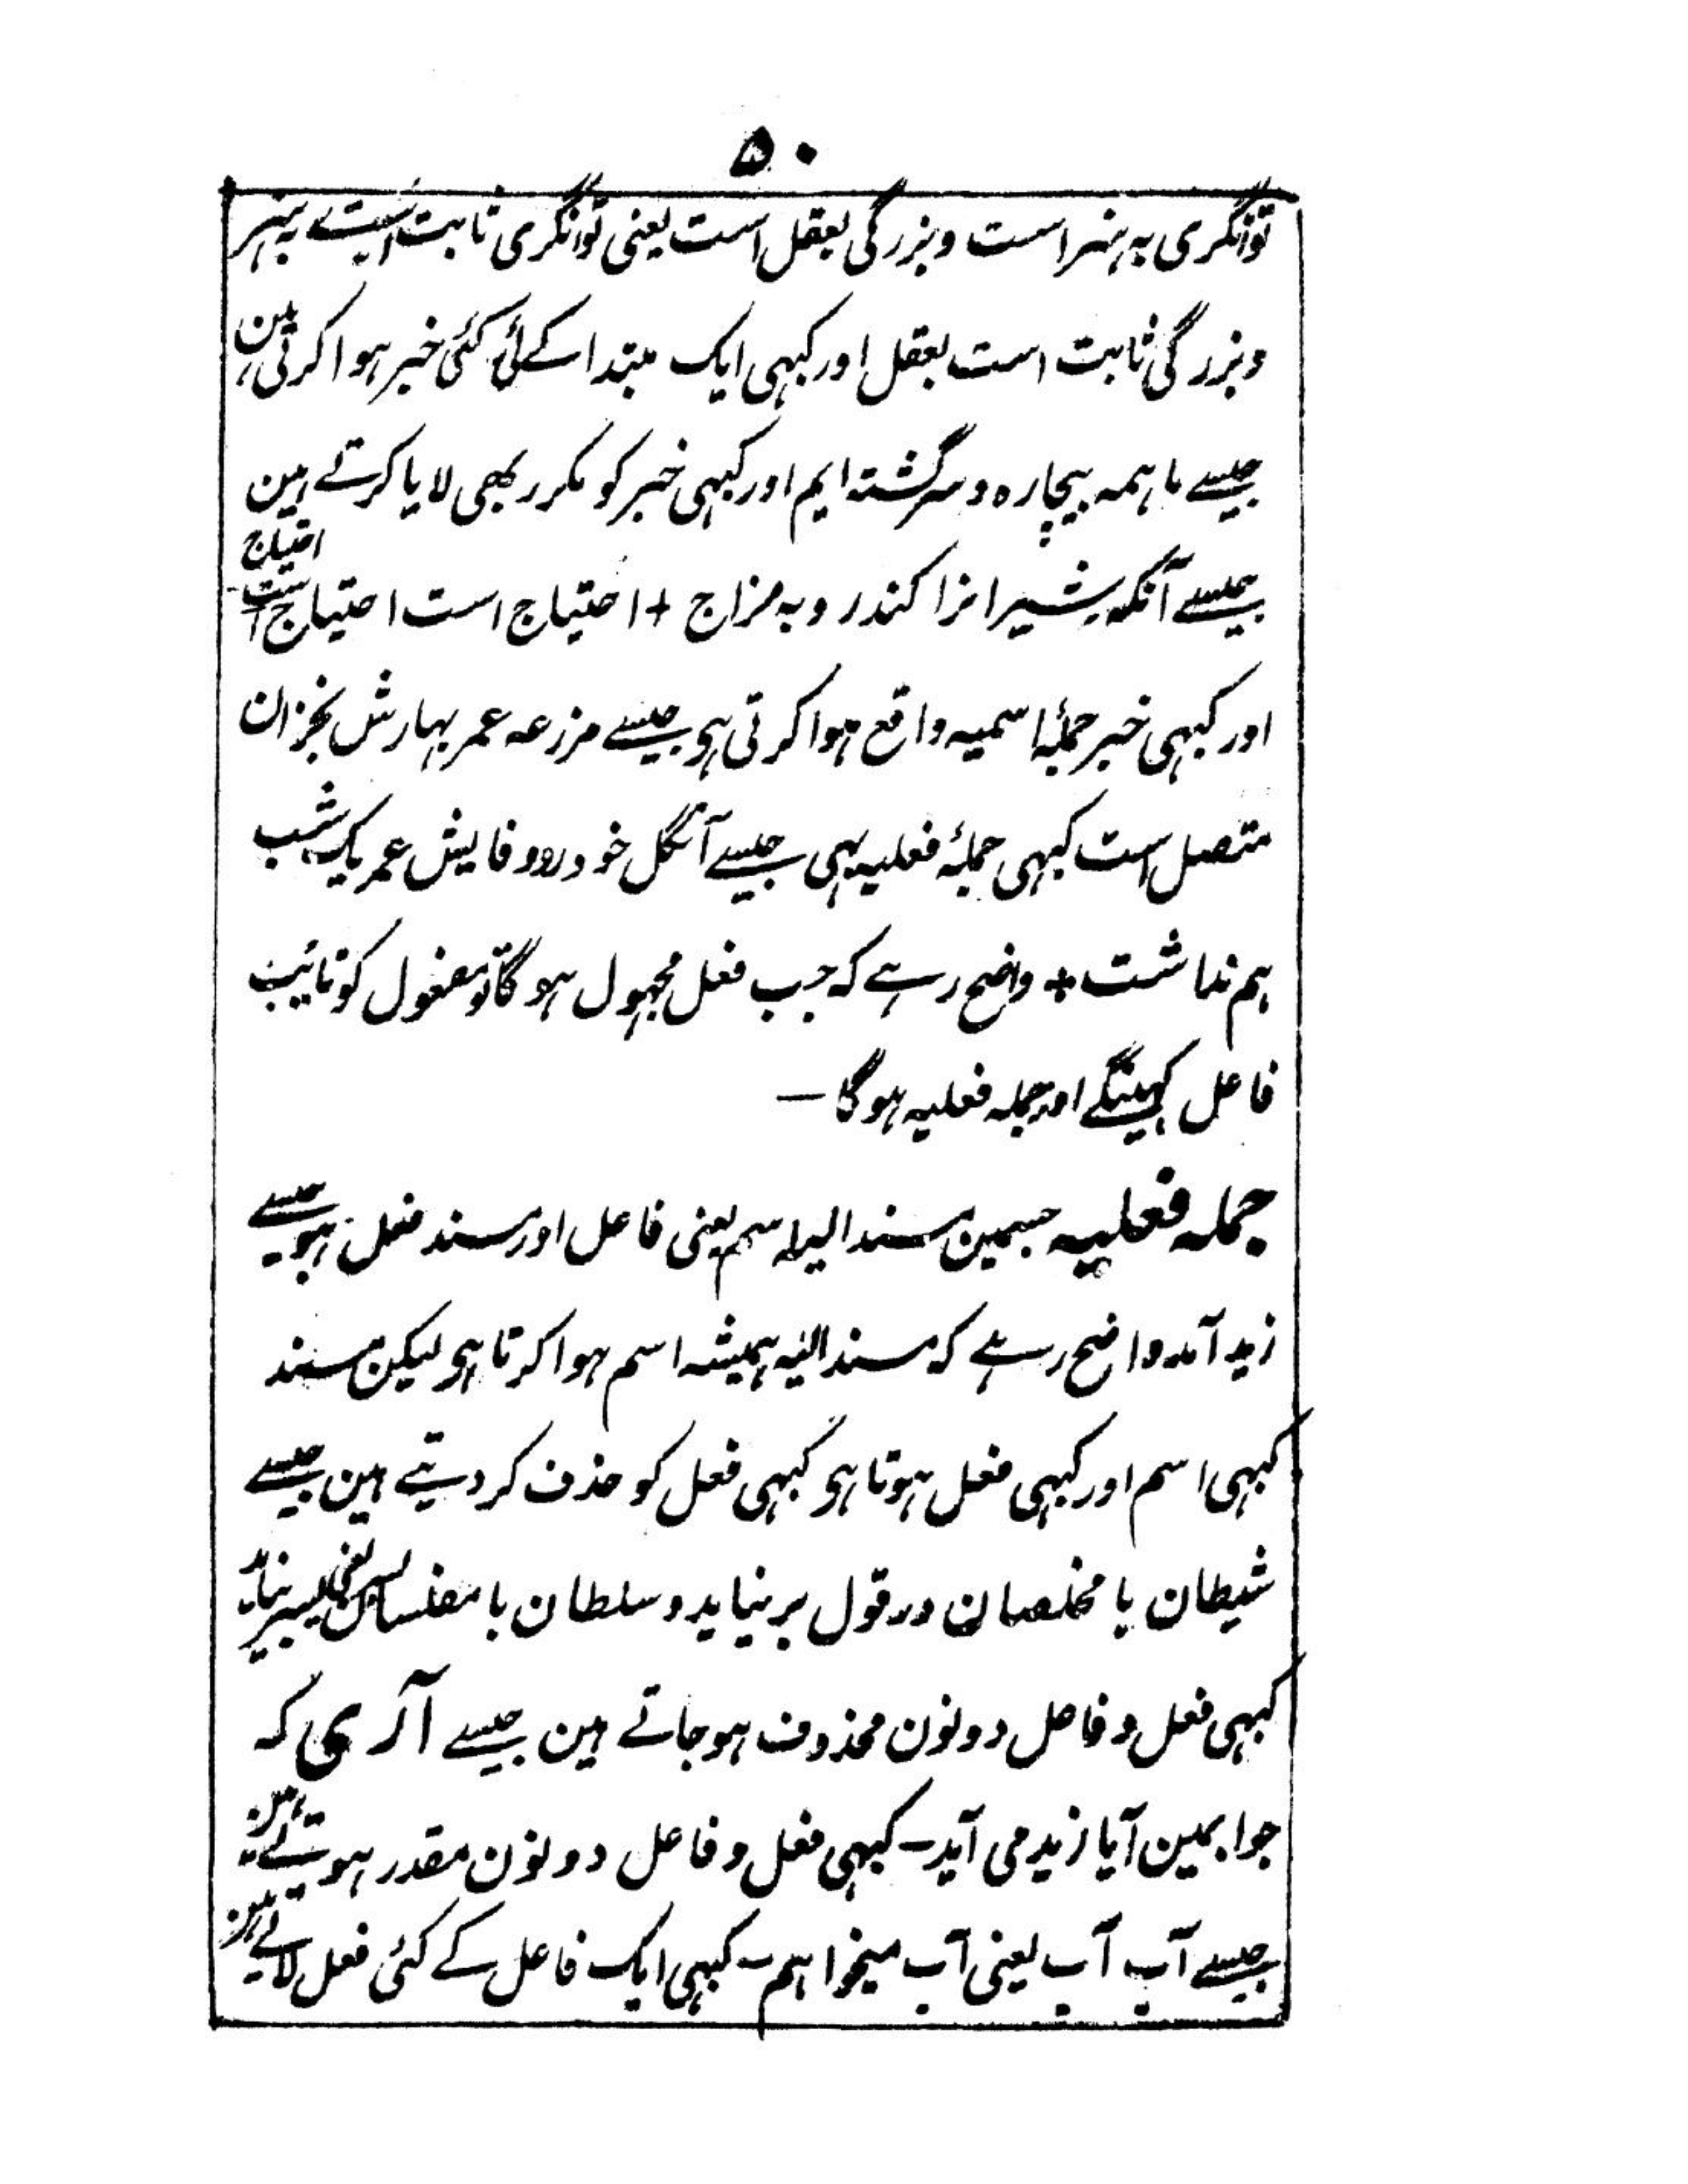 ۵۰
توانگری به ہنر است وبزرگی بعقل است یعنی توانگری ثابت است به ہنر
وبزرگی ثابت است بعقل اور کبہی ایک مبتدا کے لئے کئی خبر ہوا کرتی ہین
جیسے ما ہمہ بیچارہ و سرگشتہ ایم اور کبہی خبر کو مکرر بھی لایا کرتے ہین
جیسے آنکہ شیرانرا کند روبہ مزاج + احتیاج است احتیاج است احتیاج
اور کبہی خبر جملۂ اسمیہ واقع ہوا کرتی ہی جیسے مزرعہ عمر بہارش بخزان
متصل است کبہی جملۂ فعلیہ بہی جیسے آنگل خودرو وفایش عمر یک شب
ہم نداشت + واضح رہے کہ جب فعل مجہول ہوگا تو مفعول کو نائب
فاعل کہینگے اور جملہ فعلیہ ہوگا —
جملہ فعلیہ جسمین مسند الیہ اسم یعنی فاعل اور مسند فعل ہو جیسے
زید آمد واضح رہے کہ مسند الیہ ہمیشہ اسم ہوا کرتا ہی لیکن مسند
کبہی اسم اور کبہی فعل ہوتا ہی کبہی فعل کو حذف کر دیتے ہین جیسے
شیطان با مخلصان در قول برنیاید و سلطان با مفلسان یعنی برنیاید
کبہی فعل و فاعل دونون محذوف ہو جاتے ہین جیسے آری کہ
جوابمین آیا زید می آید – کبہی فعل و فاعل دونون مقدر ہوتے ہین
جیسے آب آب یعنی آب میخواہم – کبہی ایک فاعل کے کئی فعل لاتے ہین